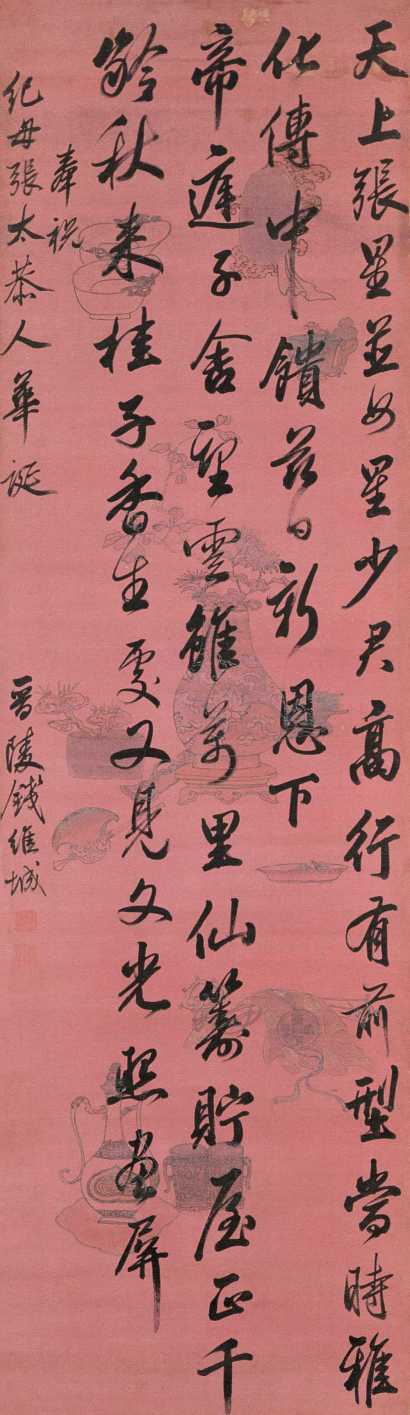 天上張星並女星少君高行有前型當時雅
化傳中饋若日新恩下
帝廷子舍望雲雖萬里仙籌貯屋正千
齡秋來桂子香生處又見文光照畫屏
奉祝
紀母張太恭人華誕
晉陵錢維城